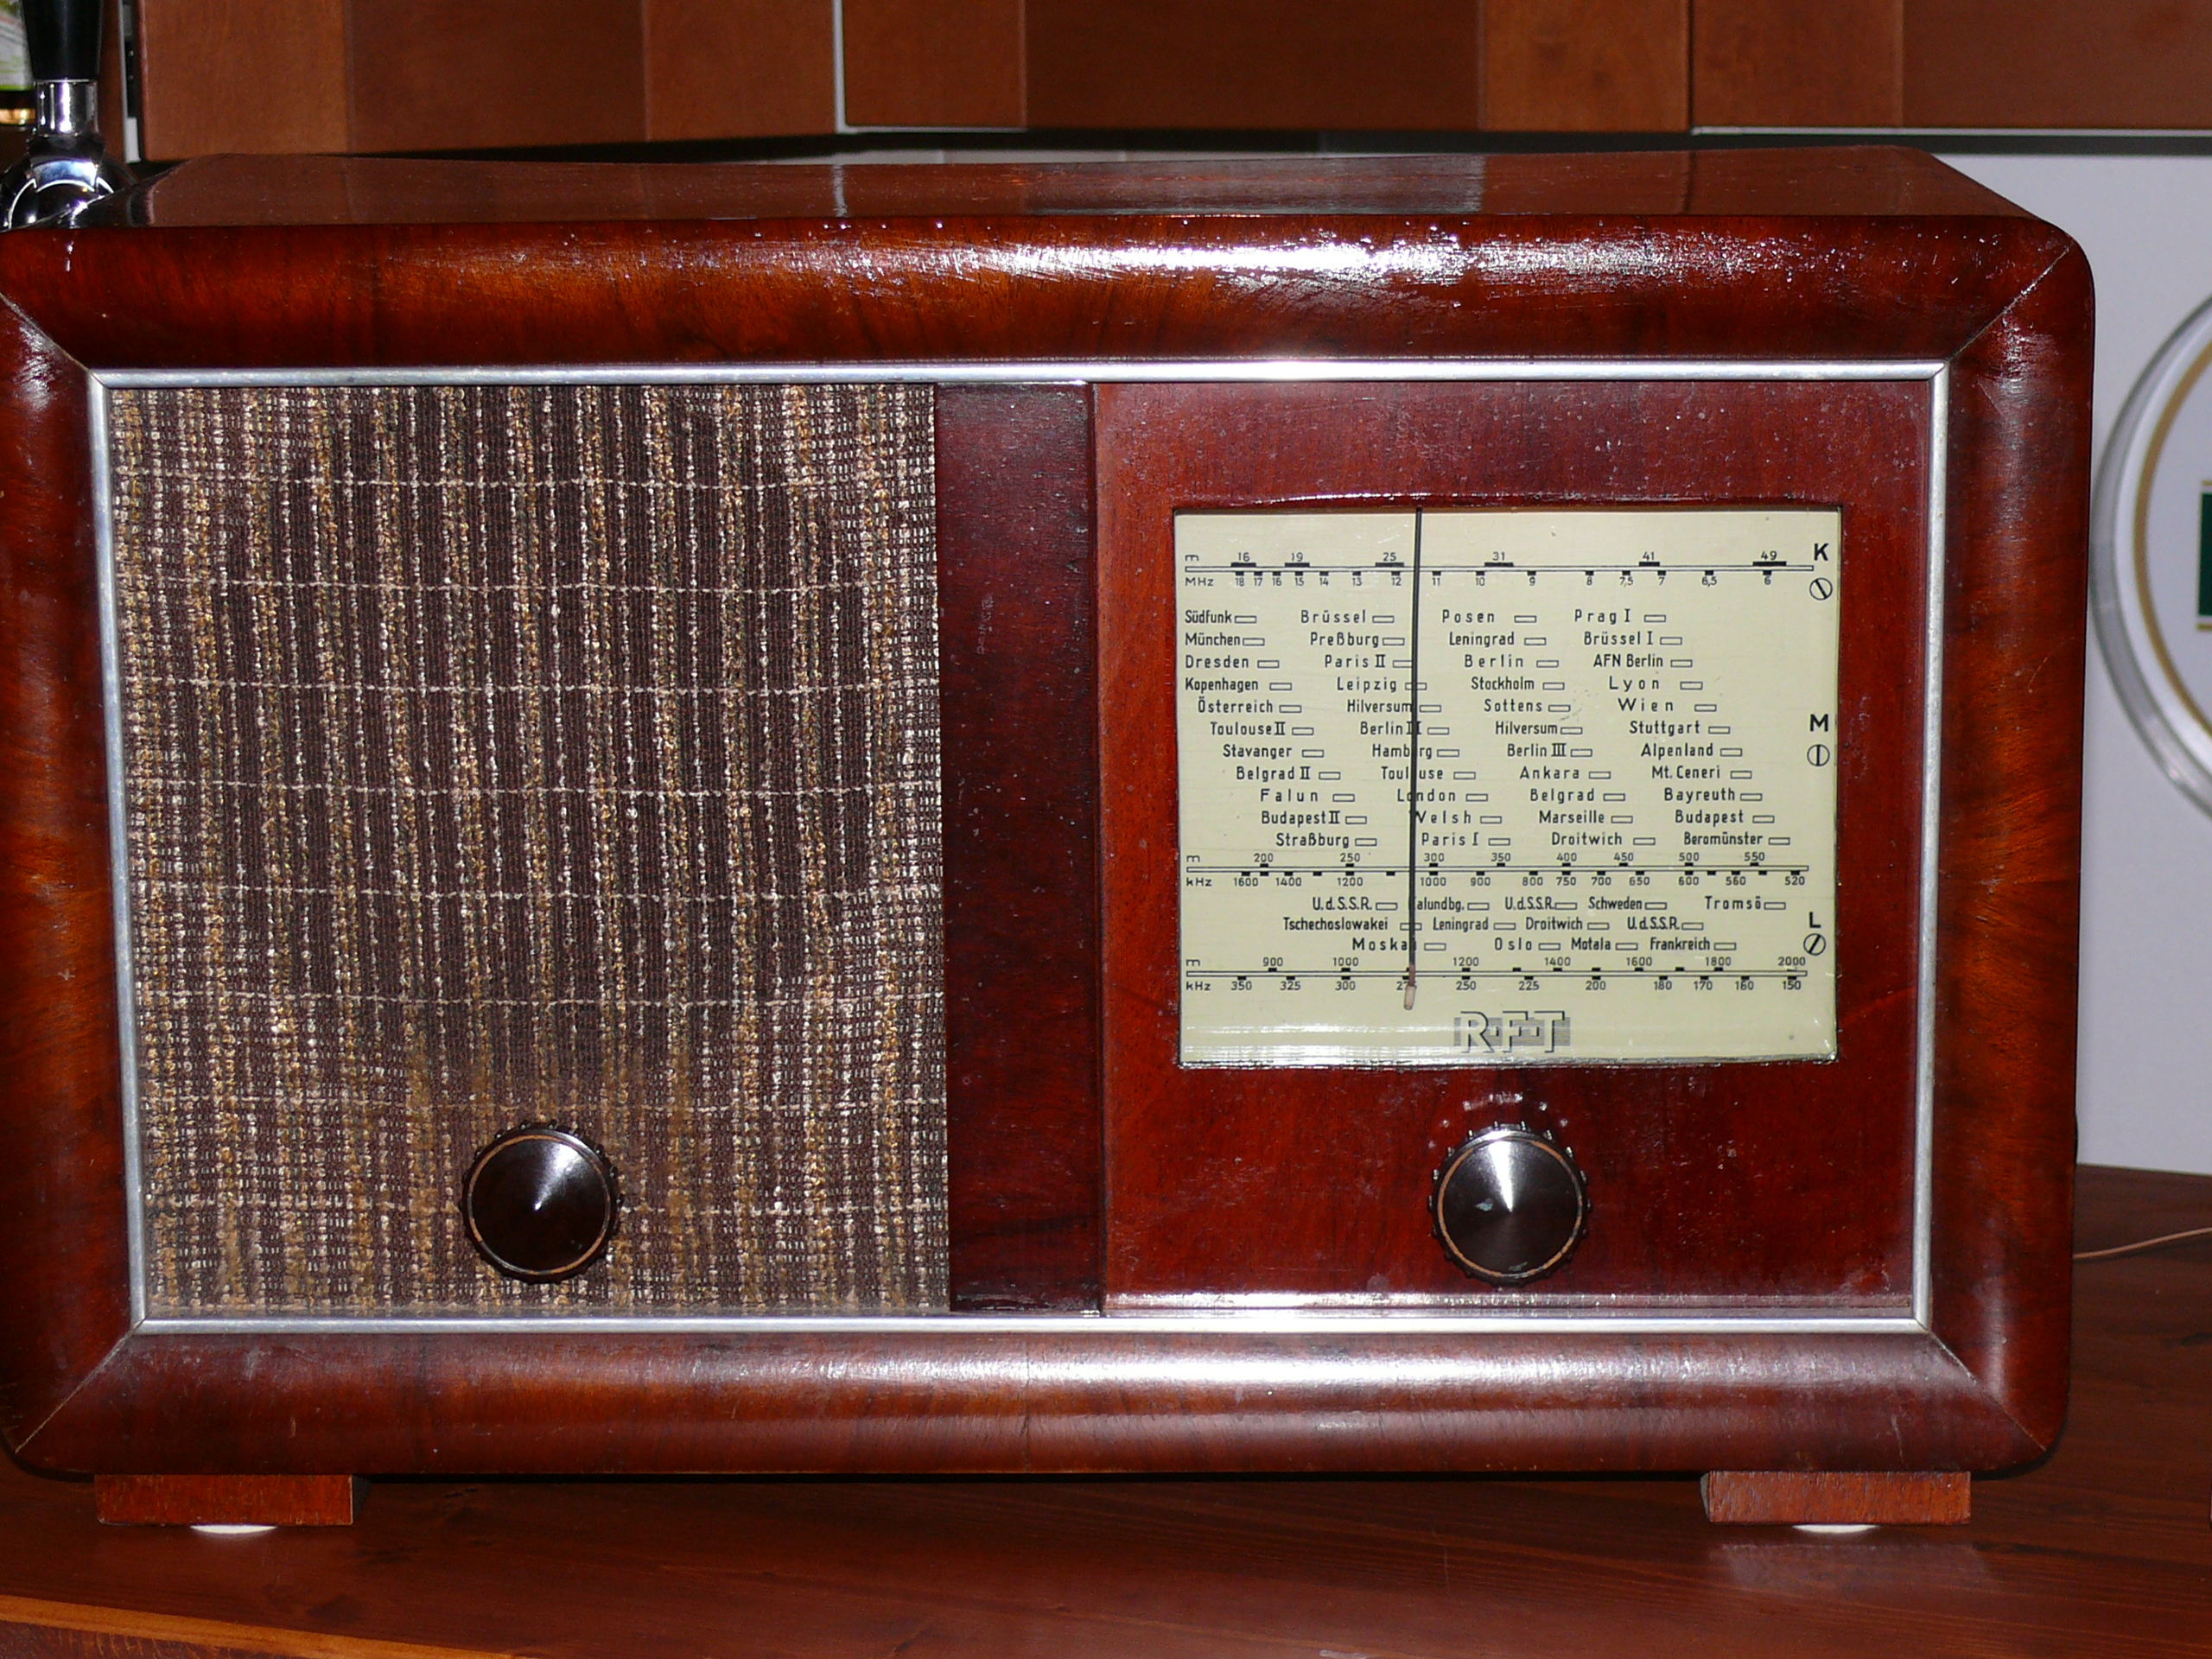 m 16 19 25 31 41 49 K
MHz 18 17 16 15 14 13 12 11 10 9 8 7,5 7 6,5 6
Südfunk Brüssel Posen Prag I
München Preßburg Leningrad Brüssel I
Dresden Paris II Berlin AFN Berlin
Kopenhagen Leipzig Stockholm Lyon
Österreich Hilversum Sottens Wien
Toulouse II Berlin II Hilversum Stuttgart M
Stavanger Hamburg Berlin III Alpenland
Belgrad II Toulouse Ankara Mt. Ceneri
Falun London Belgrad Bayreuth
Budapest II Welsh Marseille Budapest
Straßburg Paris I Droitwich Beromünster
m 200 250 300 350 400 450 500 550
kHz 1600 1400 1200 1000 900 800 750 700 650 600 560 520
U.d.S.S.R. Kalundbg. U.d.S.S.R. Schweden Tromsö
Tschechoslowakei Leningrad Droitwich U.d.S.S.R. L
Moskau Oslo Motala Frankreich
m 900 1000 1200 1400 1600 1800 2000
kHz 350 325 300 275 250 225 200 180 170 160 150
R·F·T